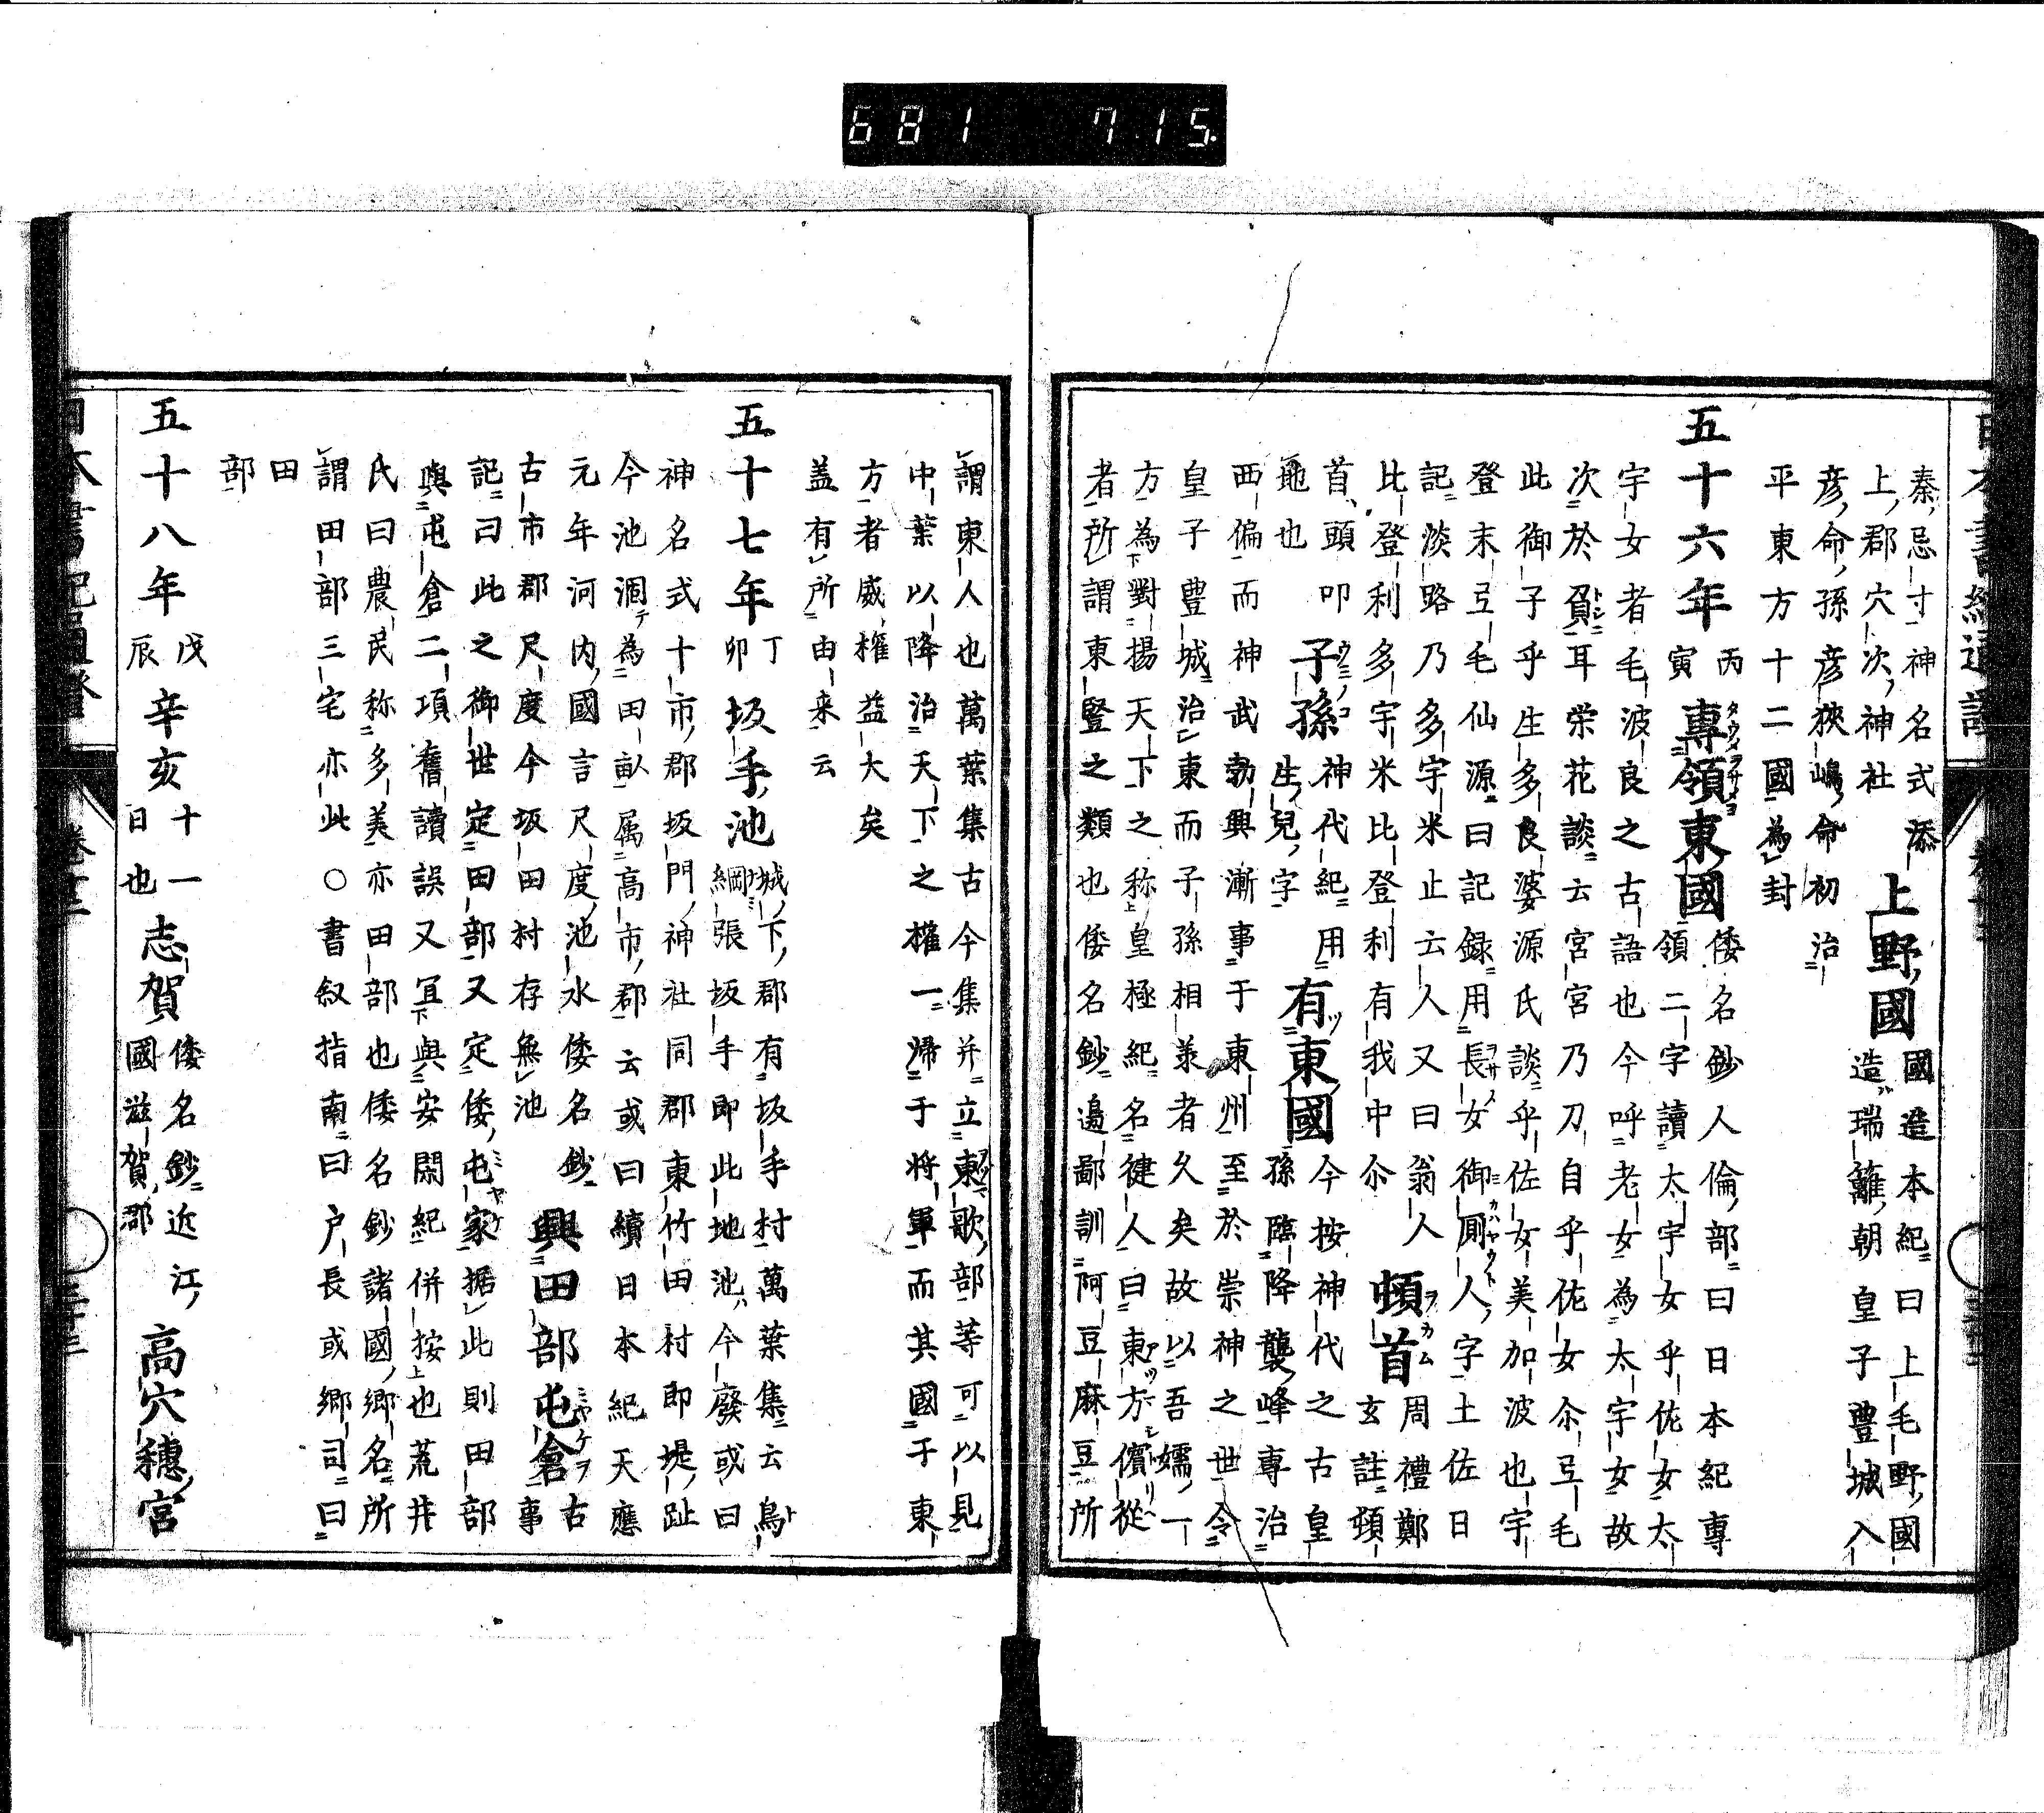 681 715
秦忌寸神名式添
上郡穴次神社
上野國
國造本紀曰上毛野國
造瑞籬朝皇子豊城入
彦命孫彦狹嶋命初治
平東方十二國為封
五十六年
丙寅
專領東國
倭名鈔人倫部曰日本紀專
領二字讀太宇女乎佐女太
宇女者毛波良之古語也今呼老女為太宇女故
次於負耳栄花談云宮宮乃刀自乎佐女尒弖毛
此御子乎生多良婆源氏談乎佐女美加波也宇
登末弖毛仙源曰記録用長女御厠人字土佐日
記淡路乃多宇米止云人又曰翁人
比登利多宇米比登利有我中尒
頓首
周禮鄭
玄註頓
首頭叩
地也
子孫
神代紀用
生兒字
有東國
今按神代之古皇
孫臨降襲峰專治
西偏而神武勃興漸事于東州至於崇神之世令
皇子豊城治東而子孫相兼者久矣故以吾嬬一
方為對揚天下之称皇極紀名健人曰東方儐從
者所謂東豎之類也倭名鈔邊鄙訓阿豆麻豆所
謂東人也萬葉集古今集并立東歌部等可以見
中葉以降治天下之權一歸于将軍而其國于東
方者威權益大矣
盖有所由来云
五十七年
丁卯
坂手池
城下郡有坂手村萬葉集云鳥
網張坂手即此地池今廢或曰
神名式十市郡坂門神社同郡東竹田村即堤趾
今池涸為田畝属高市郡云或曰續日本紀天應
元年河内國言尺度池水倭名鈔
古市郡尺度今坂田村存無池
興田部屯倉
古
事
記曰此之御世定田部又定倭屯家据此則田部
與屯倉二項舊讀誤又冝與安閑紀併按也荒井
氏曰農民称多美亦田部也倭名鈔諸國郷名所
謂田部三宅亦此○書叙指南曰戸長或郷司曰
田
部
五十八年
戊辰
辛亥
十一
日也
志賀
倭名鈔近江
國滋賀郡
高穴穗宮